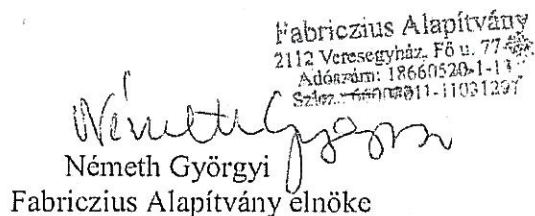 Fabriczius Alapítvány
2112 Veresegyház, Fő u. 77-
Adószám: 18660520-1-13
Szlsz.:
Németh Györgyi
Németh Györgyi
Fabriczius Alapítvány elnöke